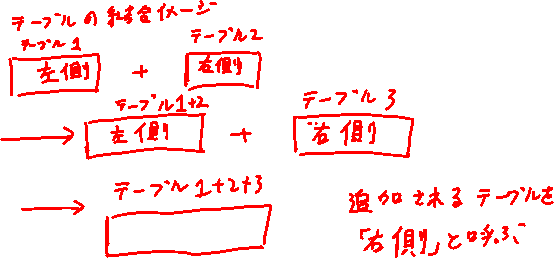 テーブルの結合イメージ
テーブル1 テーブル2
左側 + 右側
テーブル1+2 テーブル3
→ 左側 + 右側
→ テーブル1+2+3
追加されるテーブルを
「右側」と呼ぶ